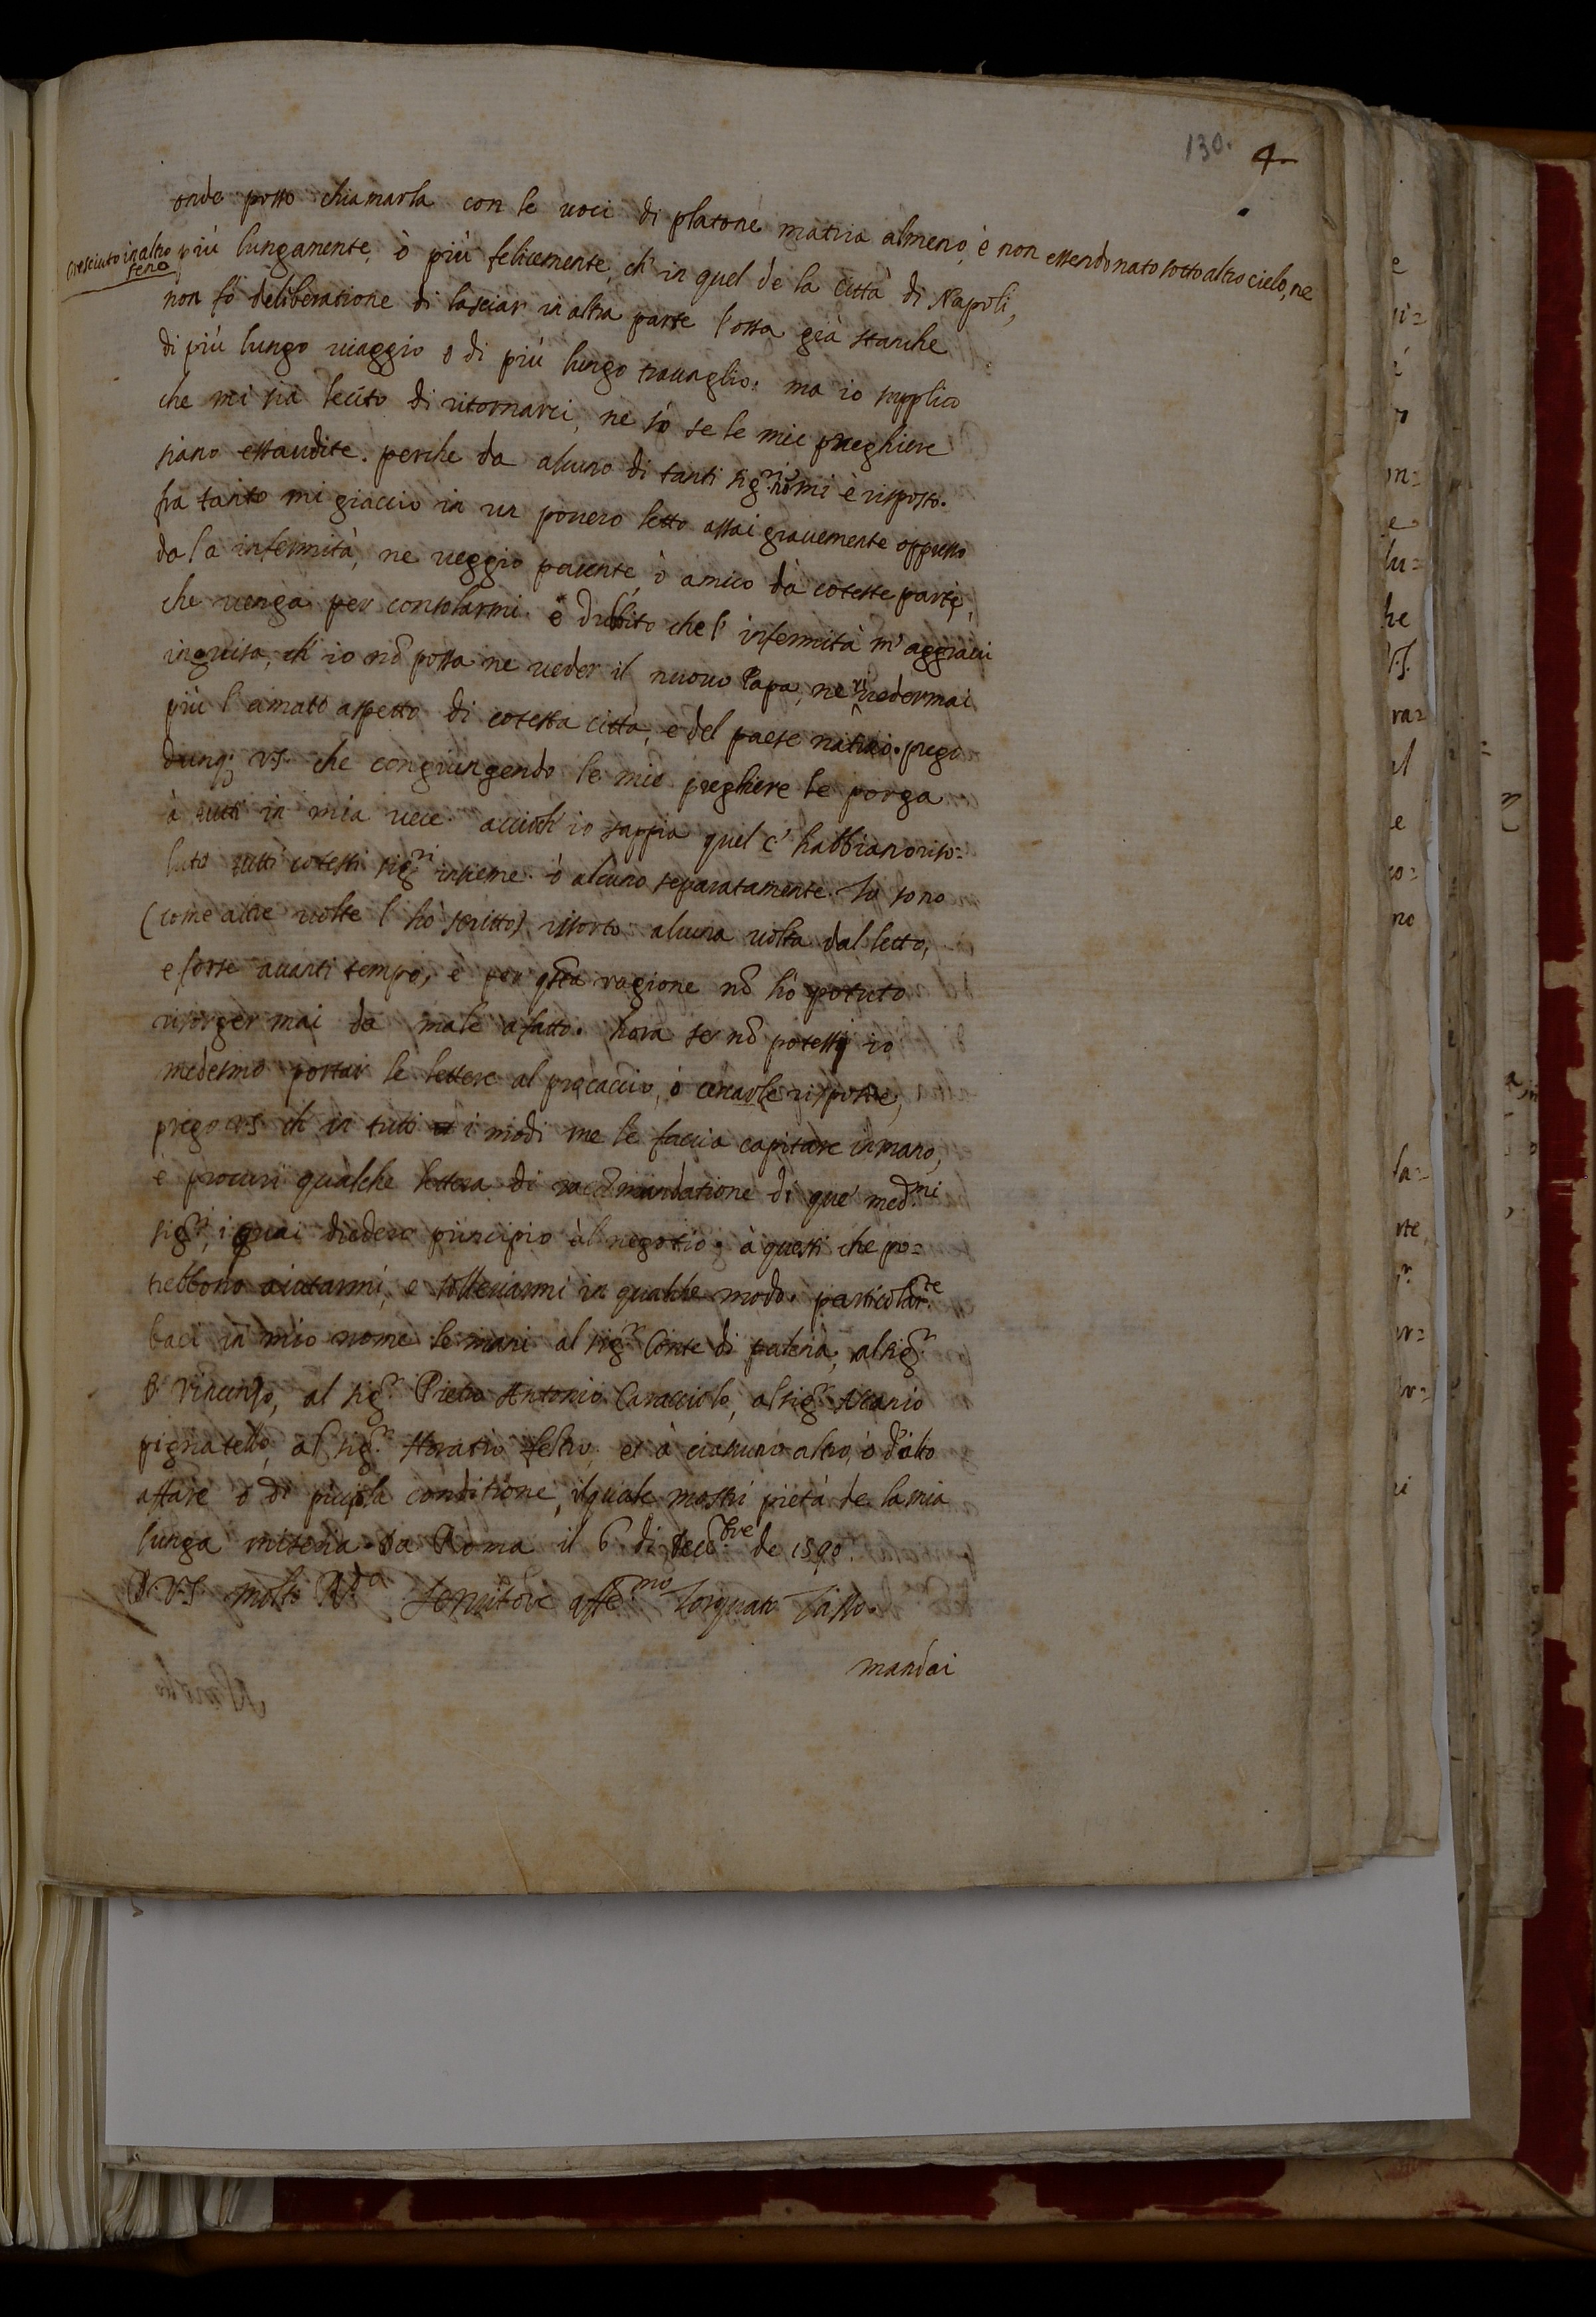 130. 4
onde posso chiamarla con le uoci di platone matria almeno, è non essendo nato sotto altro cielo, ne
cresciuto in altro seno
più lungamente, ò più felicemente, ch' in quel de la Città di Napoli,
non fò deliberatione di lasciar in altra parte l'ossa già stanche
di più lungo uiaggio o di più lungo trauaglio. ma io supplico
che mi sia lecito di ritornarci, ne sò se le mie preghiere
siano essaudite. perche da alcuno di tanti sig.ri nō mi è risposto.
fra tanto mi giaccio in un pouero letto assai grauemente oppresso
da la infermità, ne ueggio parente ò amico da coteste parti,
che uenga per consolarmi. e dubito che l' infermità m' aggraui
inguisa, ch' io nō possa ne ueder il nuouo Papa, ne riueder mai
più l' amato aspetto di cotesta città, e del paese natiuo. prego
dunq; VS. che congiungendo le mie preghiere le porga
à tutti in mia uece. accioch' io sappia quel c' habbiano riso=
luto tutti cotesti sig.ri insieme. ò alcuno separatamente. Io sono
(come altre uolte l' hò scritto) risorto alcuna uolta dal letto,
e forse auanti tempo, è per q̃sta ragione nō hò potuto
risorger mai da male afatto. hora se nō potessi io
medesmo portar le lettere al procaccio, ò cercar le risposte,
prego VS. ch' in tutti i modi me le faccia capitare in mano,
e procuri qualche lettera di raccōmandatione di que' med.mi
sig.ri, i quai diedero principio al negotio. à questi che po=
trebbono aiutarmi, e solleuarmi in qualche modo. particolar.te
baci in mio nome le mani al sig.r Conte di palena, al sig.r
D. Vincenzo, al sig.r Pietro Antonio Caracciolo, al sig.r Ascanio
pignatello, al sig.r Horatio feltro, et à ciascuno altro, ò d'alto
affare ò di picciola conditione, ilquale mostri pietà de la mia
lunga miseria. Da Roma il 6. di Decē.bre de 1590.
D. V.S. molto R.da Seruitore affe.mo Torquato Tasso.
mandai